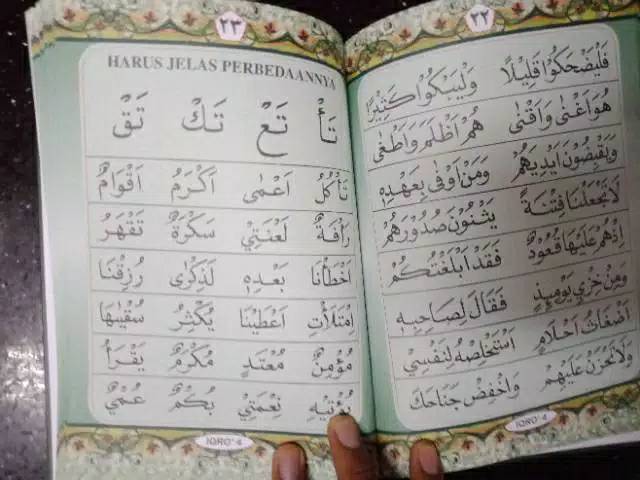 ٢٢
فَلْيَضْحَكُوْا قَلِيْلًا وَلْيَبْكُوْا كَثِيْرًا
هُوَ اَغْنٰى وَاَقْنٰى هُمْ اَظْلَمَ وَاَطْغٰى
وَيَقْبِضُوْنَ اَيْدِيَهُمْ وَمَنْ اَوْفٰى بِعَهْدِهٖ
لَا تَجْعَلْنَا فِتْنَةً يَثْنُوْنَ صُدُوْرَهُمْ
اِذْهُمْ عَلَيْهَا قُعُوْدٌ فَقَدْ اَبْلَغْتُكُمْ
وَمِنْ خِزْيِ يَوْمِئِذٍ فَقَالَ لِصَاحِبِهٖ
اَضْغَاثُ اَحْلَامٍ اَسْتَخْلِصْهُ لِنَفْسِيْ
وَلَا تَحْزَنْ عَلَيْهِمْ وَاخْفِضْ جَنَاحَكَ
IQRO' 4
٢٣
HARUS JELAS PERBEDAANNYA
تَأْ تَعْ تَكْ تَقْ
تَأْكُلُ اَعْمٰى اَكْرَمُ اَقْوَامٌ
رَأْفَةٌ لَعْنَتِيْ سَكْرَةٌ تَقْهَرُ
اَخْطَأْنَا بَعْدِهٖ لَذِكْرٰى رُزِقْنَا
اِمْتَلَأْتِ اَعْطَيْنَا يُكْثِرُ سُقْيٰهَا
مُؤْمِنٌ مُعْتَدٍ مُكْرَمٌ يَقْرَأُ
نِعْمَتِيْ بُكْمٌ عُمْيٌ
IQRO' 4